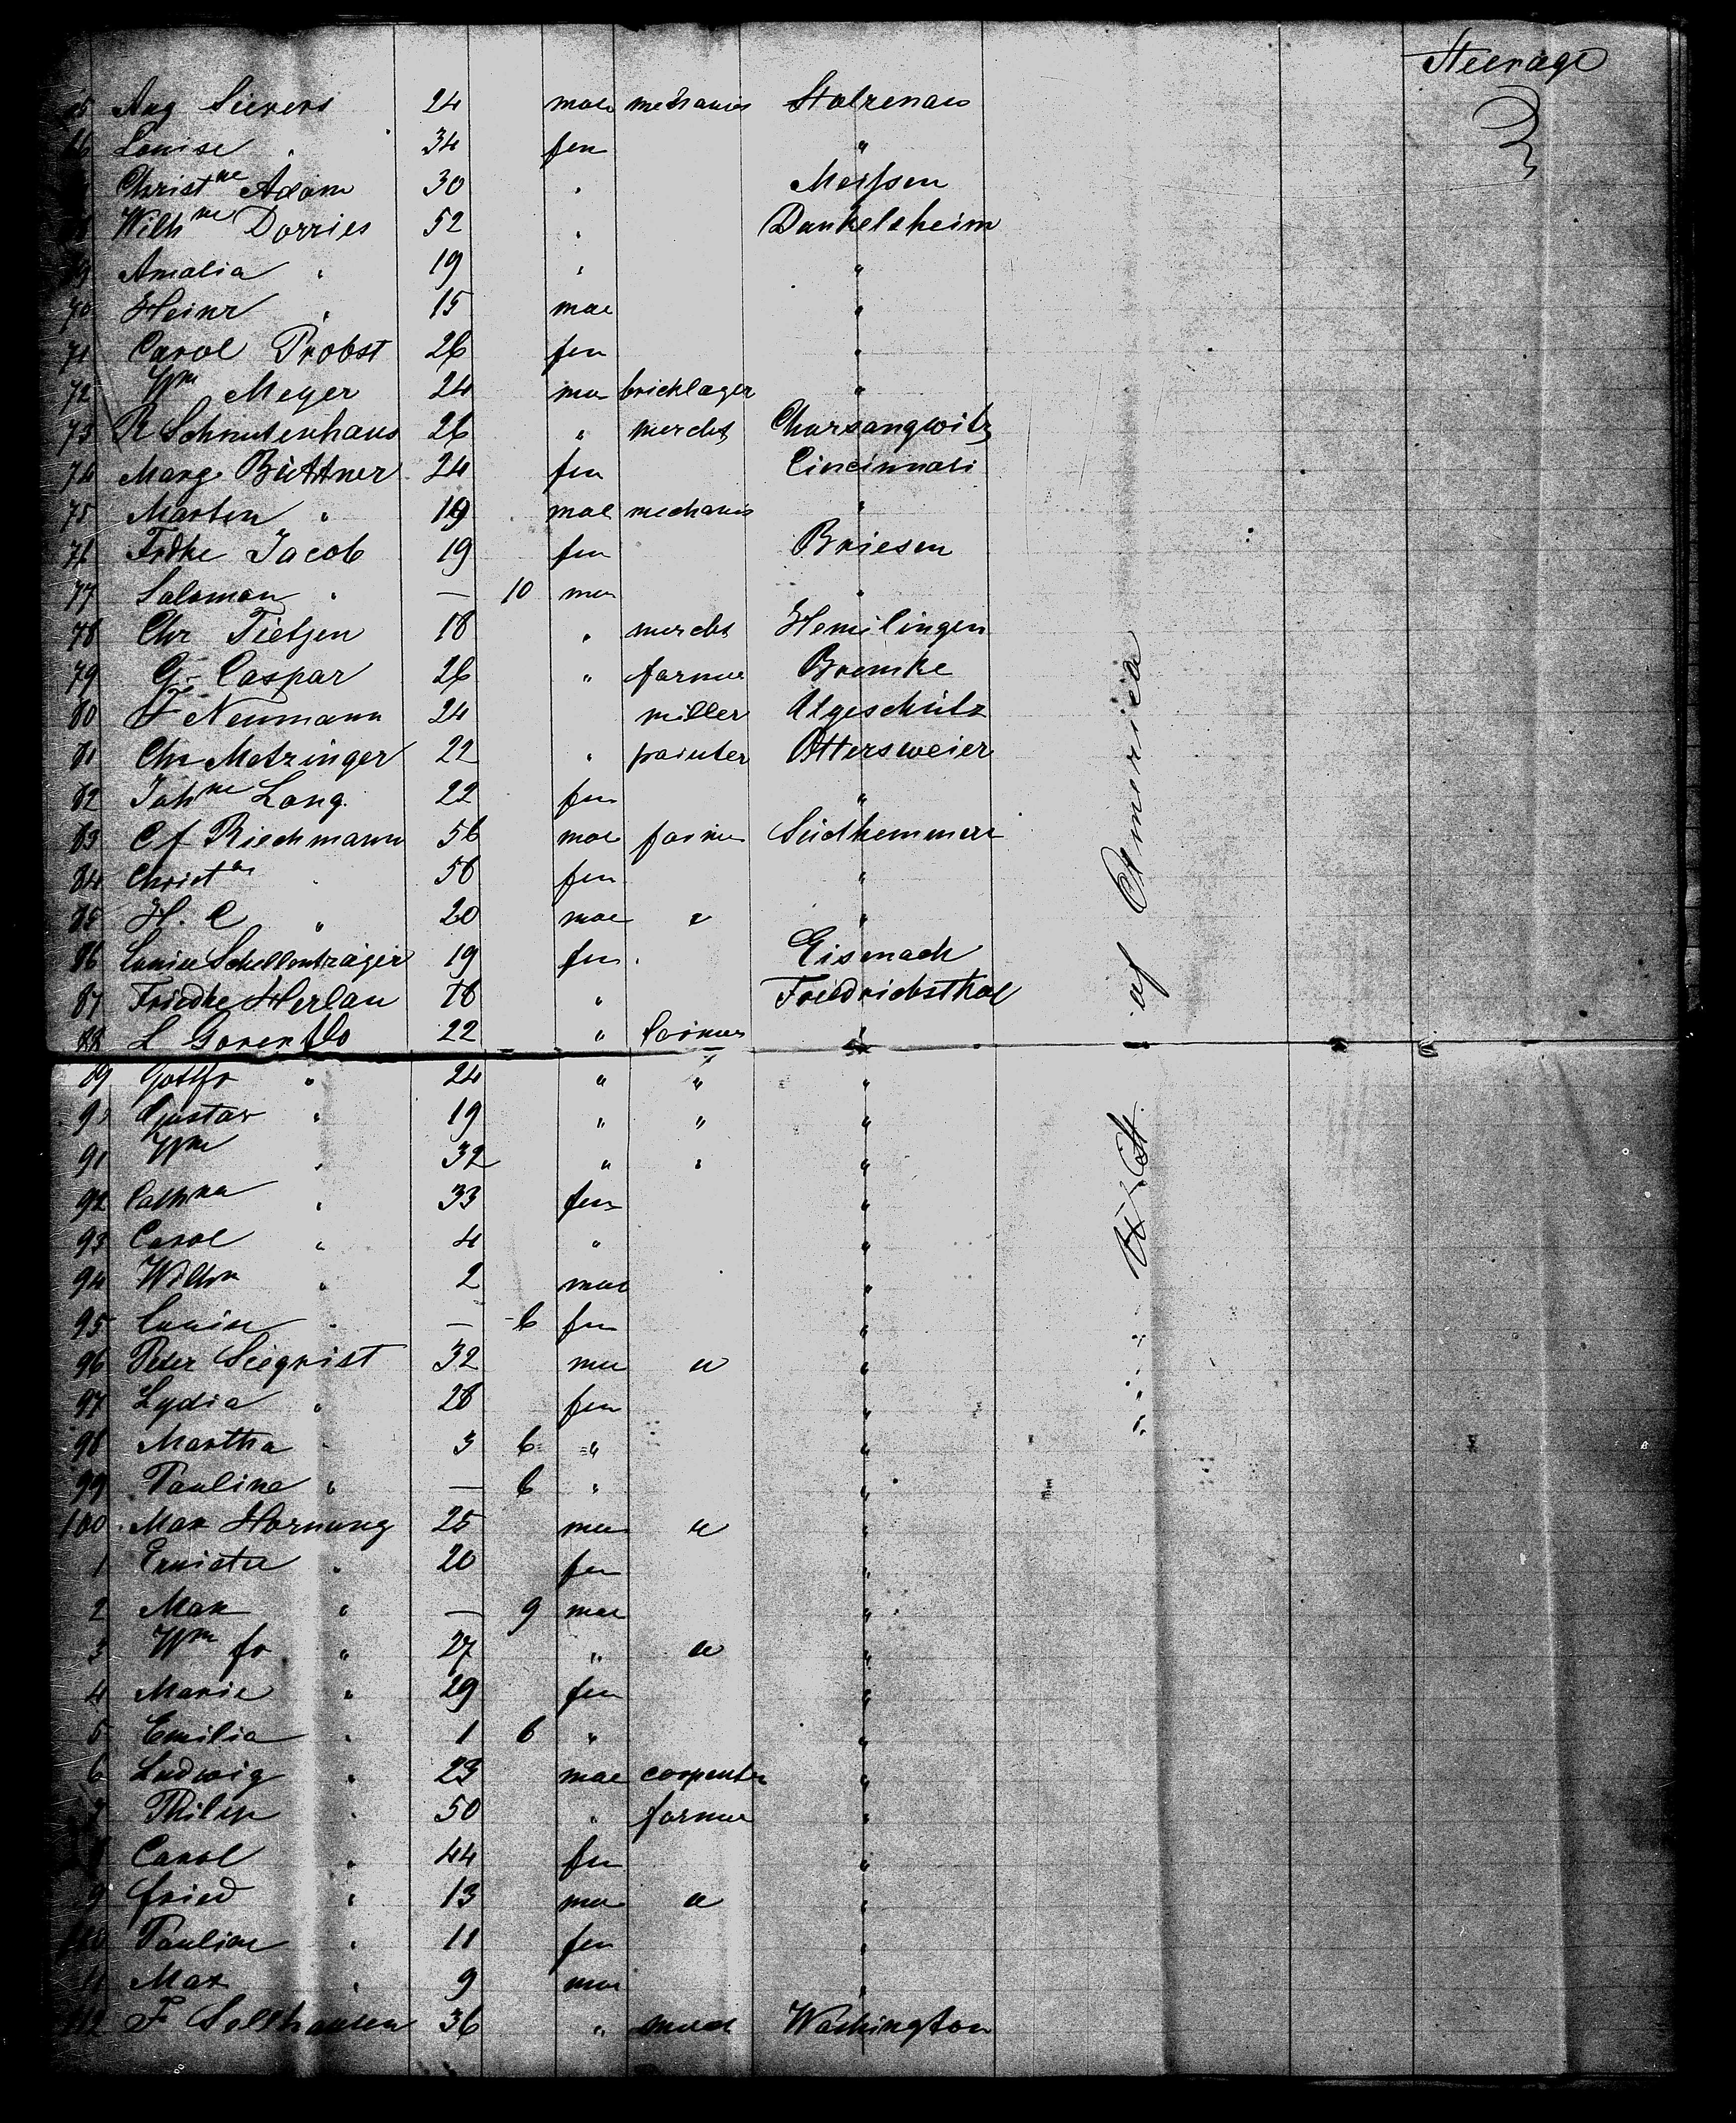 Steerage
65 Aug Sievers 24 mae mechanic Stolzenau
66 Louise " 34 fem "
Christne Adam 30 " Meissen
68 Wilhne Dorries 52 " Dankelsheim
69 Amalia " 19 " "
70 Heinr " 15 mae "
71 Carol Probst 26 fem "
72 Wm Meyer 24 mae bricklayer "
73 R Schnutenhaus 26 " mercht Chursangwitz
74 Marg Büttner 24 fem Cincinnati
75 Martin " 19 mae mechanic "
76 Fridke Jacob 19 fem Briesen
77 Salomon " — 10 mae "
78 Chr Tietjen 18 " mercht Hemelingen
79 G. Caspar 26 " farmer Bremke
80 F Neumann 24 miller Algeschütz
81 Chr Metzinger 22 " painter Ottersweier
82 Johne Lang 22 fem "
83 Cf Riechmann 56 mae farmer Südhemmern
84 Christne " 58 fem "
85 H. C " 20 mae " "
86 Louise Schellenträger 19 fem Eisenach
87 Friedke Herlan 18 " Friedrichsthal
88 L Gorenflo 22 " farmer "
89 Gottfr " 24 " " "
90 Gustav " 19 " " "
91 Wm " 32 " " "
92 Cathna " 33 fem "
93 Carol " 4 " "
94 Wilhm " 2 mae "
95 Louise " — 6 fem "
96 Peter Siegrist 32 mae " "
97 Lydia " 28 fem "
98 Martha " 3 6 " "
99 Pauline " — 6 " "
100 Max Hornung 25 mae " "
1 Ernistne " 20 fem "
2 Max " — 9 mae "
3 Wm fr " 27 " " "
4 Marie " 29 fem "
5 Emilia " 1 6 " "
6 Ludwig " 23 mae carpenter "
7 Philip " 50 " farmer "
8 Carol " 44 fem "
9 fried " 13 mae " "
110 Pauline " 11 fem "
11 Max " 9 mae "
112 F Sellhausen 36 " Washington
U. St. of America